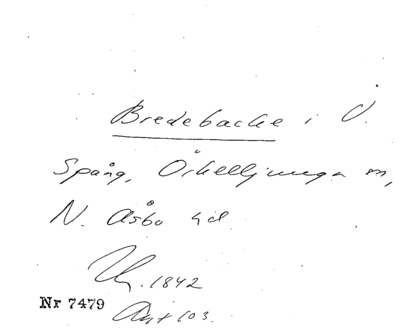 Bredebacke i V.
Spång, Örkelljunga sn,
N. Åsbo hd.
1842
Nr 7479
103.